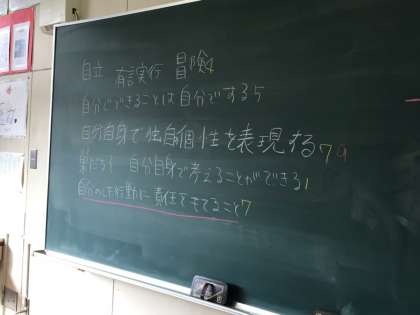 自立 有言実行 冒険
自分でできることは自分でする5
自分自身で独自個性を表現する79
巣だち! 自分自身で考えることができる1
自分のした行動に責任をもてること7